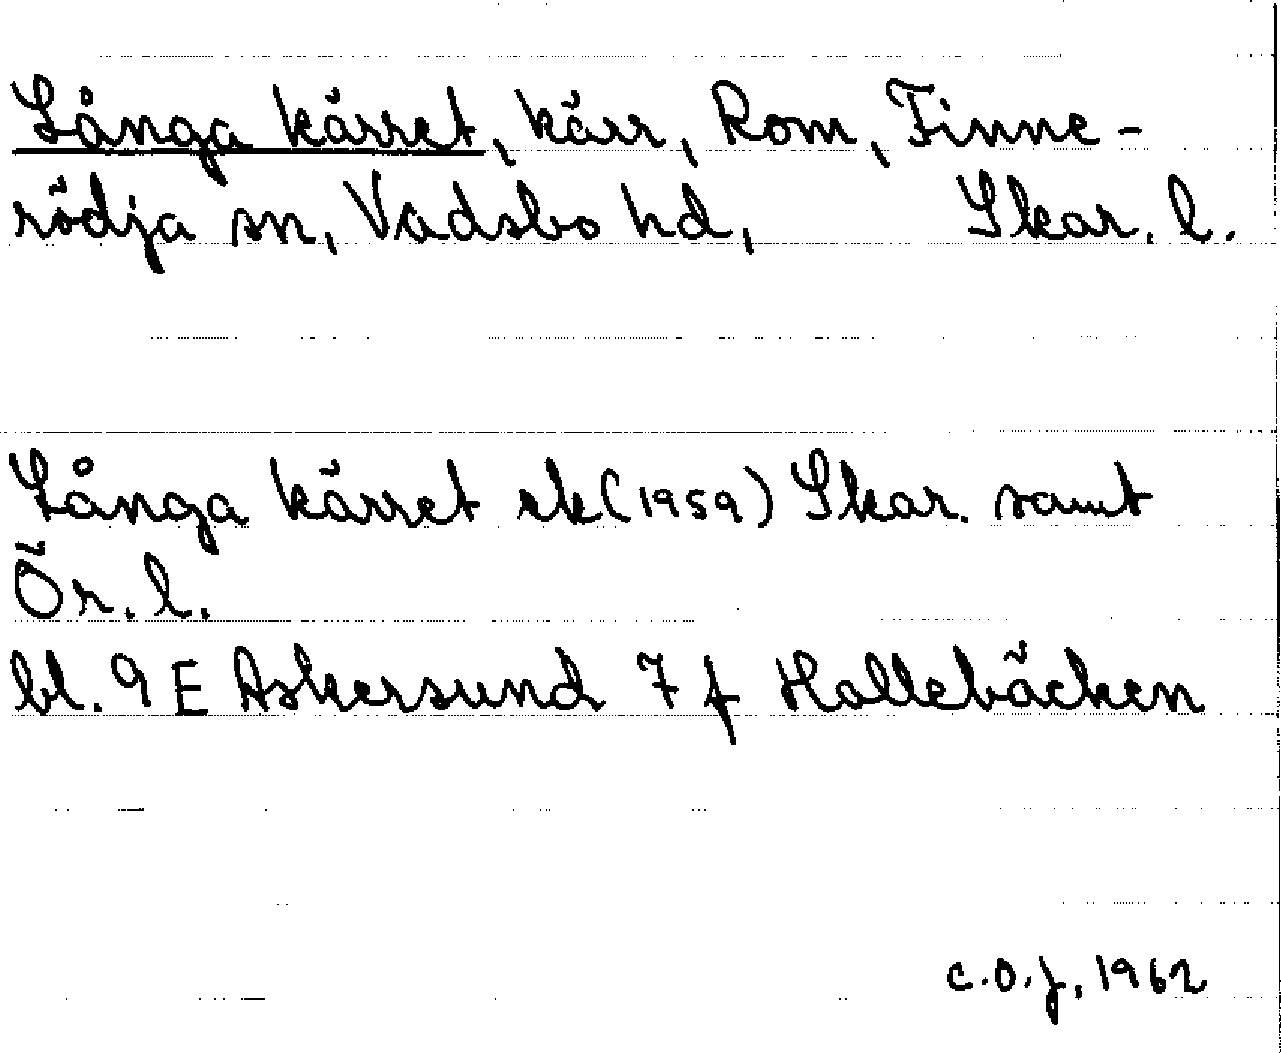 Långa kärret, kärr, Rom, Finne-
rödja sn, Vadsbo hd, Skar. l.
Långa kärret ek (1959) Skar. samt
Ör. l.
bl. 9 E Askersund 7 f Hallebäcken
C.O.J. 1962